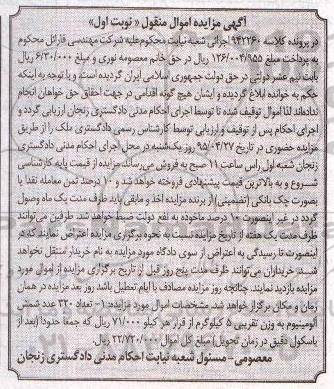 آگهی مزایده اموال منقول « نوبت اول»
در پرونده کلاسه ۹۴۲۲۶۰ اجرائی شعبه نیابت محکوم‌علیه شرکت مهندسی فارائل محکوم
به پرداخت مبلغ ۱۲۶/۰۰۴/۹۵۵ ریال در حق خانم معصومه نوری و مبلغ ۶/۳۰۰/۰۰۰ ریال
بابت نیم عشر دولتی در حق دولت جمهوری اسلامی ایران گردیده است، و با توجه به اینکه
حکم به خوانده ابلاغ گردیده و ایشان هیچ گونه اقدامی در جهت احقاق حق خواهان انجام
نداده‌اند لذا اموال توقیف شده تا توسط اجرای احکام مدنی دادگستری زنجان ارزیابی گردد و
اجرای احکام پس از توقیف و ارزیابی توسط کارشناس رسمی دادگستری ملک را از طریق
مزایده حضوری در تاریخ ۹۵/۰۴/۲۷ روز یک‌شنبه در محل اجرای احکام مدنی دادگستری
زنجان شعبه اول راس ساعت ۱۱ صبح به فروش می‌رساند. مزایده از قیمت پایه کارشناسی
شروع و به بالاترین قیمت پیشنهادی فروخته خواهد شد و ۱۰ درصد ثمن معامله نقدا یا
بصورت چک بانکی (تضمینی) از برنده مزایده اخذ و مابقی باید ظرف مدت یک ماه وصول
گردد در غیر اینصورت ۱۰ درصد ماخوذه به نفع دولت ضبط خواهد شد. طرفین می‌توانند
ظرف مدت یک هفته از تاریخ مزایده نسبت به نحوه برگزاری مزایده اعتراض نمایند که در
اینصورت تا رسیدگی به اعتراض از سوی دادگاه مورد مزایده به نام خریدار منتقل نخواهد
شد. خریداران می‌توانند ظرف مدت پنج روز قبل از تاریخ برگزاری مزایده از اموال مورد
مزایده بازدید نمایند. چنانچه روز مزایده مصادف با ایام تعطیل باشد روز بعد مزایده در همان
زمان و مکان برگزار خواهد شد. مشخصات اموال مورد مزایده: ۱- تعداد ۳۲۰ عدد شمش
آلومینیوم به وزن تقریبی ۵ کیلوگرم از قرار هر کیلو ۷۱/۰۰۰ ریال که جمعا حدودا (بعد از
باسکول دقیق در زمان تحویل) مبلغ کل اموال ۲۲/۷۲۰/۰۰۰ ریال.
معصومی - مسئول شعبه نیابت احکام مدنی دادگستری زنجان